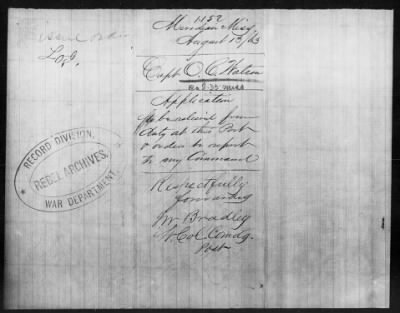 1152
Meridian Miss
August 13/63
Capt O. C. Watson
Application
to be relieved from
duty at this Post
& orders to report
to my Command
Respectfully
forwarded
Jno Bradley
Lt Col Comdg.
Post
RECORD DIVISION,
REBEL ARCHIVES,
WAR DEPARTMENT.